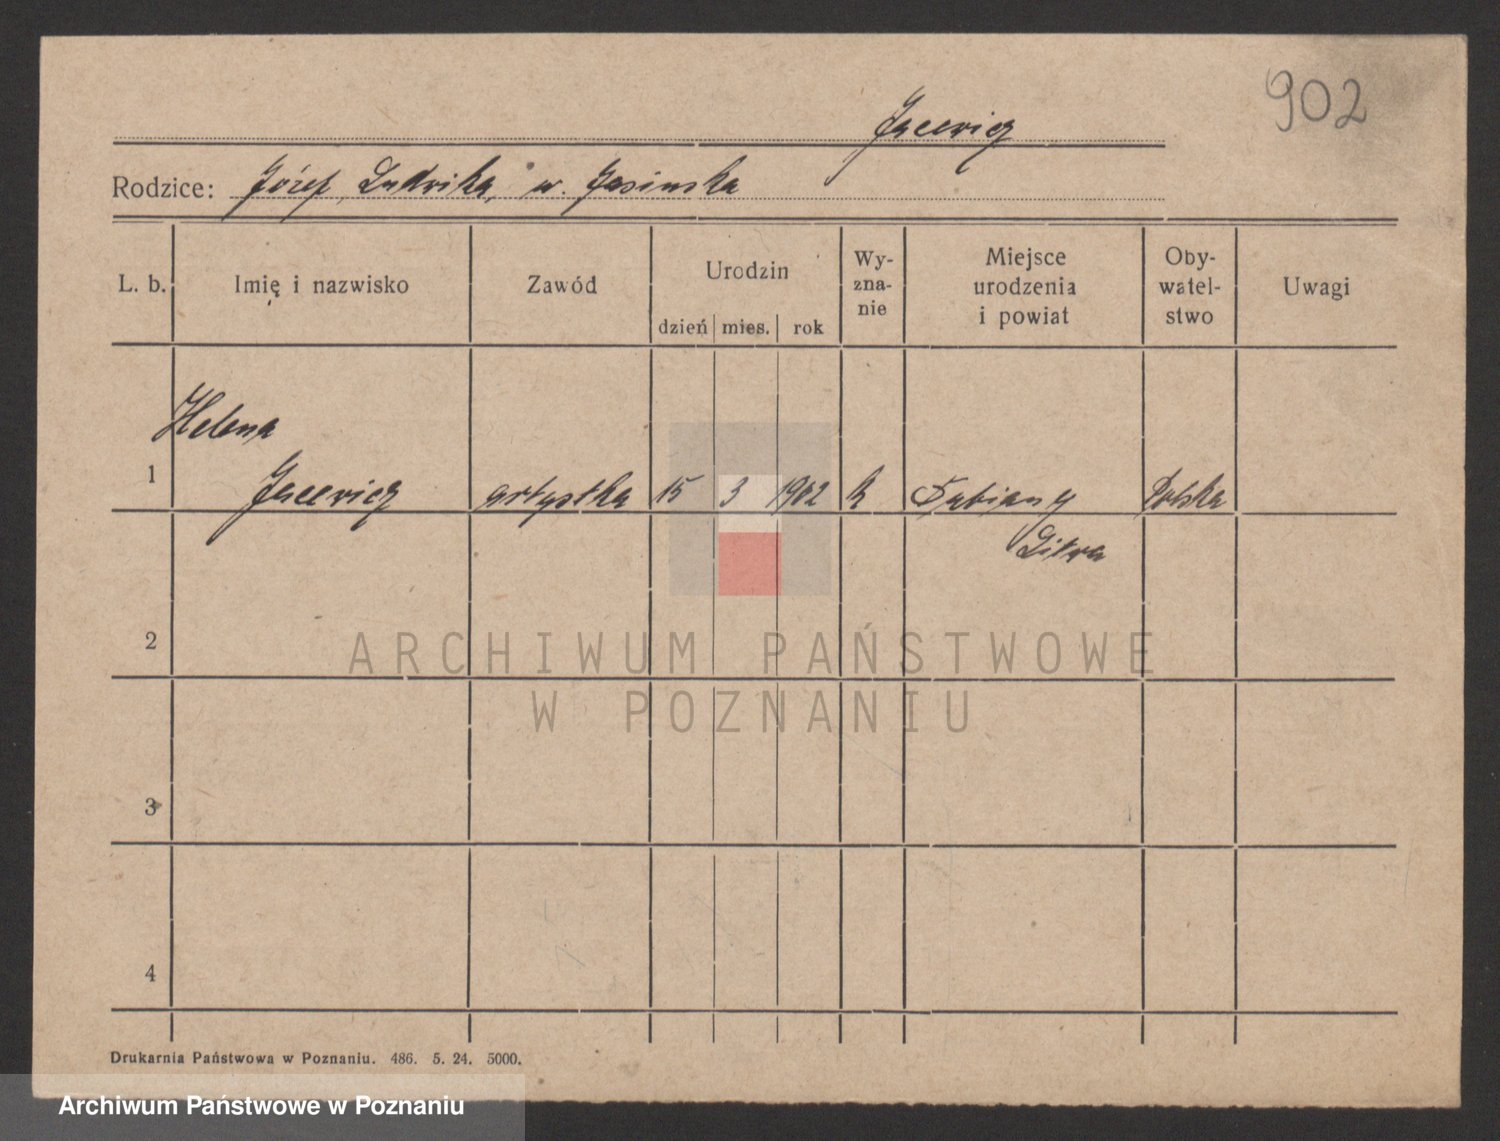 902
Jacewicz
Rodzice: Józef, Ludwika, w. Jasinska
L. b. Imię i nazwisko Zawód Urodzin dzień mies. rok Wy-zna-nie Miejsce urodzenia i powiat Oby-watel-stwo Uwagi
Helena
1 Jacewicz artystka 15 3 1902 k Fabiany Polska
Litwa
2
ARCHIWUM PAŃSTWOWE
W POZNANIU
3
4
Drukarnia Państwowa w Poznaniu. 486. 5. 24. 5000.
Archiwum Państwowe w Poznaniu